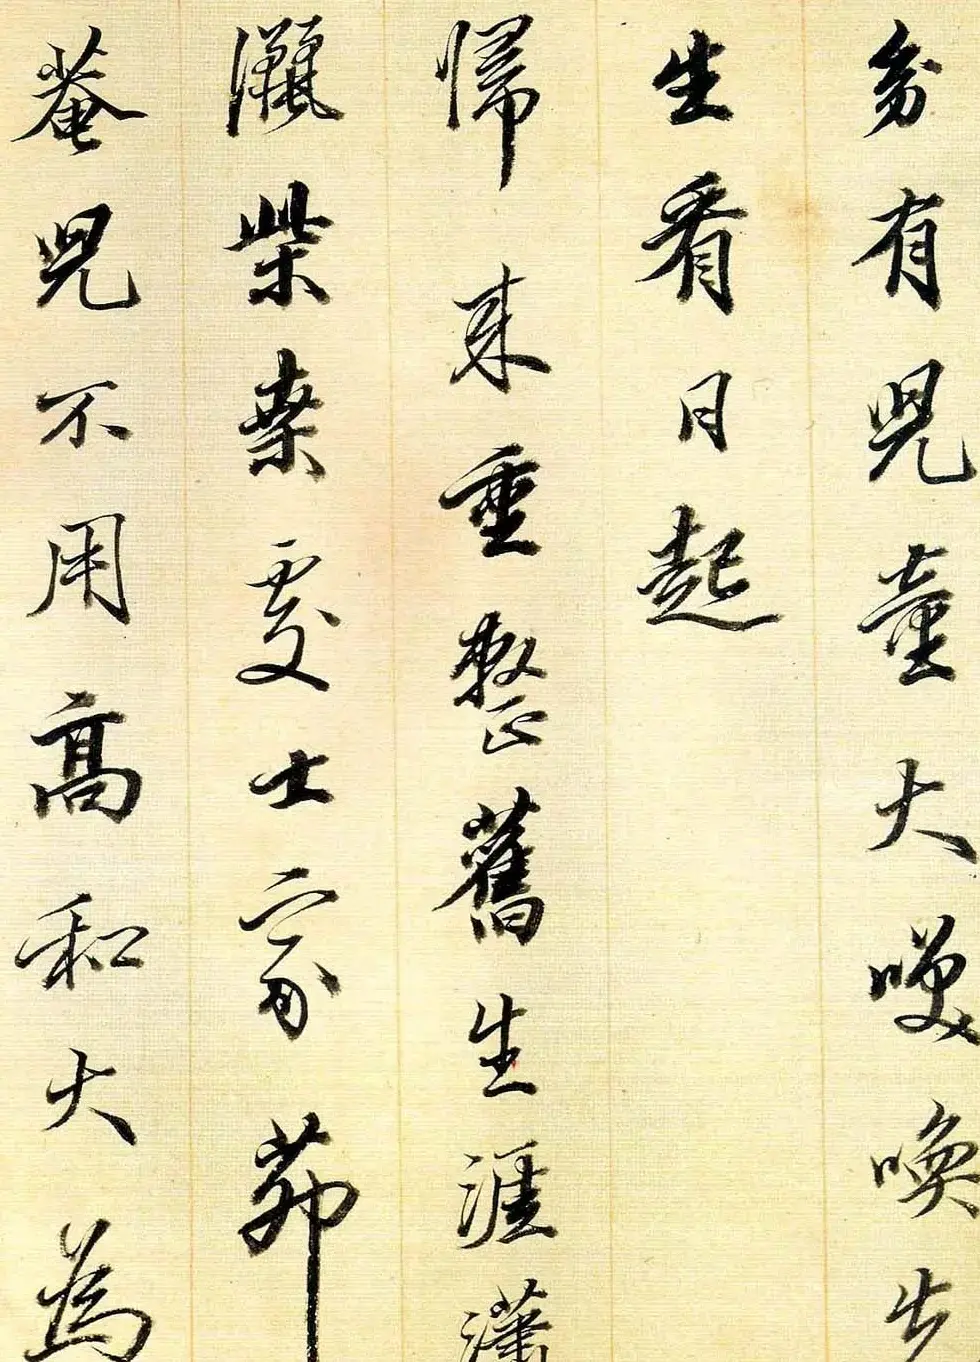 有兒童大喚先
生看日起
歸來重整舊生涯瀟
灑柴桒處士家茆
菴兒不用高和大為